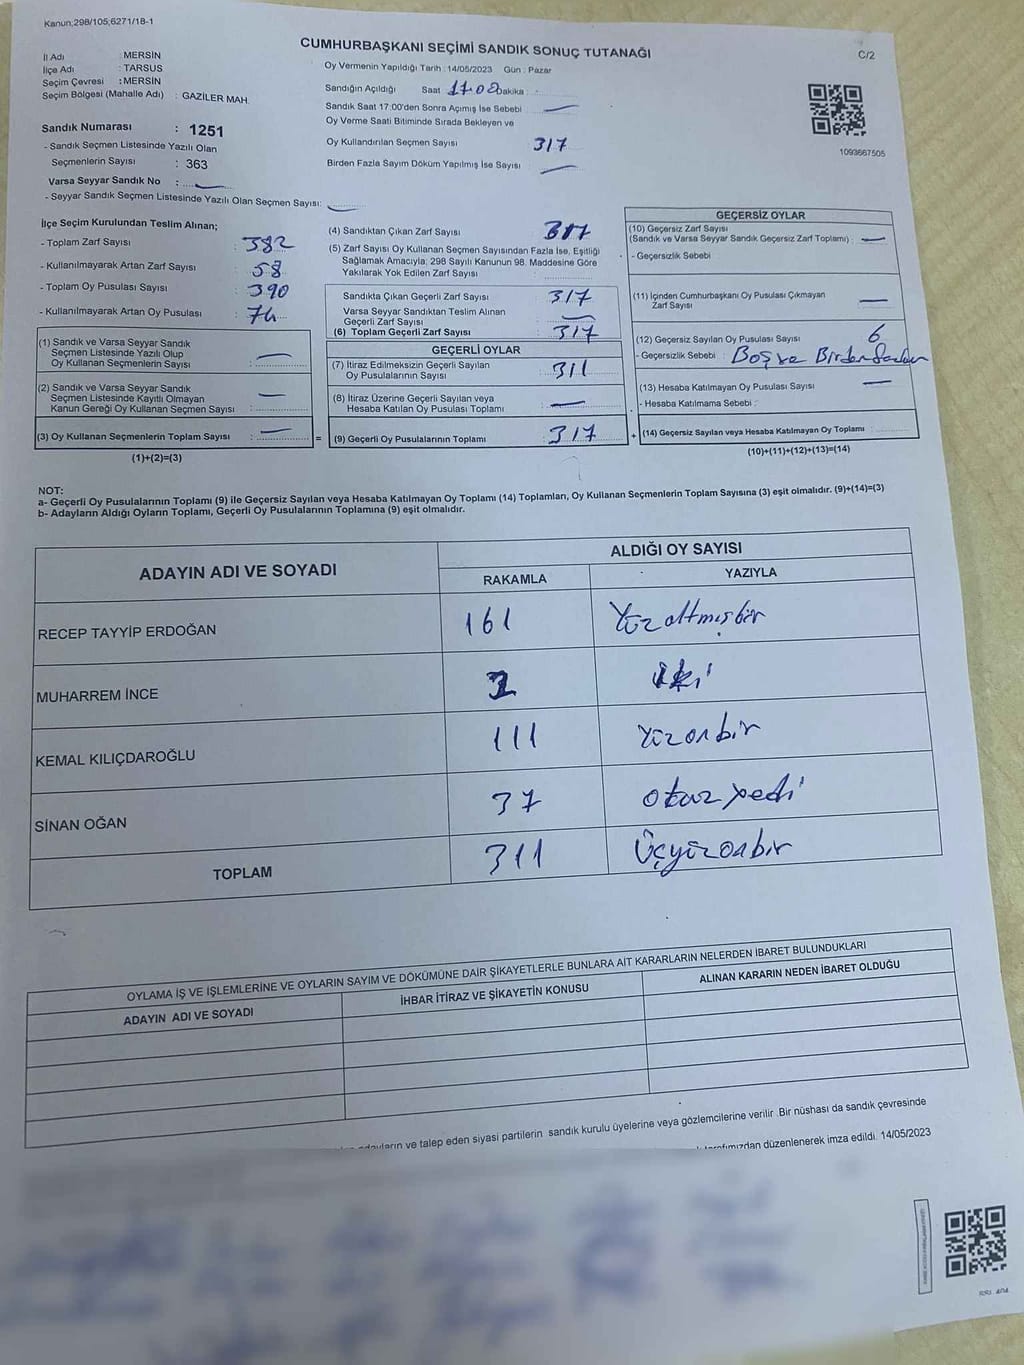 Kanun,298/105,6271/18-1
CUMHURBAŞKANI SEÇİMİ SANDIK SONUÇ TUTANAĞI
C/2
İl Adı : MERSİN
İlçe Adı : TARSUS
Seçim Çevresi : MERSİN
Seçim Bölgesi (Mahalle Adı) : GAZİLER MAH.
Sandık Numarası : 1251
- Sandık Seçmen Listesinde Yazılı Olan
Seçmenlerin Sayısı : 363
Varsa Seyyar Sandık No : —
- Seyyar Sandık Seçmen Listesinde Yazılı Olan Seçmen Sayısı: —
Oy Vermenin Yapıldığı Tarih : 14/05/2023 Gün : Pazar
Sandığın Açıldığı Saat 17:02 Dakika :
Sandık Saat 17:00'den Sonra Açımış İse Sebebi : —
Oy Verme Saati Bitiminde Sırada Bekleyen ve
Oy Kullandırılan Seçmen Sayısı 317
Birden Fazla Sayım Döküm Yapılmış İse Sayısı : —
1093667505
İlçe Seçim Kurulundan Teslim Alınan;
- Toplam Zarf Sayısı : 382
- Kullanılmayarak Artan Zarf Sayısı : 58
- Toplam Oy Pusulası Sayısı : 390
- Kullanılmayarak Artan Oy Pusulası : 74
(1) Sandık ve Varsa Seyyar Sandık
Seçmen Listesinde Yazılı Olup
Oy Kullanan Seçmenlerin Sayısı : —
(2) Sandık ve Varsa Seyyar Sandık
Seçmen Listesinde Kayıtlı Olmayan
Kanun Gereği Oy Kullanan Seçmen Sayısı : —
(3) Oy Kullanan Seçmenlerin Toplam Sayısı : — =
(1)+(2)=(3)
(4) Sandıktan Çıkan Zarf Sayısı : 317
(5) Zarf Sayısı Oy Kullanan Seçmen Sayısından Fazla İse, Eşitliği
Sağlamak Amacıyla; 298 Sayılı Kanunun 98. Maddesine Göre
Yakılarak Yok Edilen Zarf Sayısı :
Sandıkta Çıkan Geçerli Zarf Sayısı : 317
Varsa Seyyar Sandıktan Teslim Alınan
Geçerli Zarf Sayısı : —
(6) Toplam Geçerli Zarf Sayısı : 317
GEÇERLİ OYLAR
(7) İtiraz Edilmeksizin Geçerli Sayılan
Oy Pusulalarının Sayısı : 311
(8) İtiraz Üzerine Geçerli Sayılan veya
Hesaba Katılan Oy Pusulası Toplamı : —
(9) Geçerli Oy Pusulalarının Toplamı : 317 +
GEÇERSİZ OYLAR
(10) Geçersiz Zarf Sayısı
(Sandık ve Varsa Seyyar Sandık Geçersiz Zarf Toplamı) : —
- Geçersizlik Sebebi
(11) İçinden Cumhurbaşkanı Oy Pusulası Çıkmayan
Zarf Sayısı : —
(12) Geçersiz Sayılan Oy Pusulası Sayısı : 6
- Geçersizlik Sebebi : Boş ve Birden fazla
(13) Hesaba Katılmayan Oy Pusulası Sayısı : —
- Hesaba Katılmama Sebebi :
(14) Geçersiz Sayılan veya Hesaba Katılmayan Oy Toplamı :
(10)+(11)+(12)+(13)=(14)
NOT:
a- Geçerli Oy Pusulalarının Toplamı (9) ile Geçersiz Sayılan veya Hesaba Katılmayan Oy Toplamı (14) Toplamları, Oy Kullanan Seçmenlerin Toplam Sayısına (3) eşit olmalıdır. (9)+(14)=(3)
b- Adayların Aldığı Oyların Toplamı, Geçerli Oy Pusulalarının Toplamına (9) eşit olmalıdır.
ADAYIN ADI VE SOYADI ALDIĞI OY SAYISI
RAKAMLA YAZIYLA
RECEP TAYYİP ERDOĞAN 161 Yüzaltmışbir
MUHARREM İNCE 2 iki
KEMAL KILIÇDAROĞLU 111 Yüzonbir
SİNAN OĞAN 37 otuzyedi
TOPLAM 311 Üçyüzonbir
OYLAMA İŞ VE İŞLEMLERİNE VE OYLARIN SAYIM VE DÖKÜMÜNE DAİR ŞİKAYETLERLE BUNLARA AİT KARARLARIN NELERDEN İBARET BULUNDUKLARI
ADAYIN ADI VE SOYADI İHBAR İTİRAZ VE ŞİKAYETİN KONUSU ALINAN KARARIN NEDEN İBARET OLDUĞU
adayların ve talep eden siyasi partilerin sandık kurulu üyelerine veya gözlemcilerine verilir .Bir nüshası da sandık çevresinde
tarafımızdan düzenlenerek imza edildi. 14/05/2023